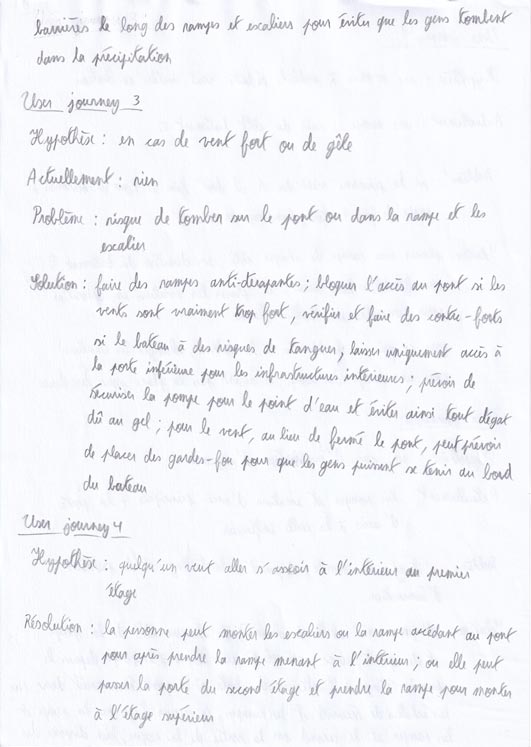 barrières le long des rampes et escaliers pour éviter que les gens tombent
dans la précipitation
User journey 3
Hypothèse : en cas de vent fort ou de gêle
Actuellement : rien
Problème : risque de tomber sur le pont ou dans la rampe et les
escalier
Solution : faire des rampes anti-dérapantes ; bloquer l'accès au pont si les
vents sont vraiment trop fort, vérifier et faire des contre-forts
si le bateau à des risques de tanguer, laisser uniquement accès à
la porte inférieure pour les infrastructures intérieures ; prévoir de
sécuriser la pompe pour le point d'eau et éviter ainsi tout dégat
dû au gel ; pour le vent, au lieu de fermé le pont, peut prévoir
de placer des gardes-fou pour que les gens puissent se tenir au bord
du bateau
User journey 4
Hypothèse : quelqu'un veut aller s'asseoir à l'intérieur au premier
étage
Résolution : la personne peut monter les escaliers ou la rampe accédant au pont
pour après prendre la rampe menant à l'intérieur ; ou elle peut
passer la porte du second étage et prendre la rampe pour monter
à l'étage supérieur